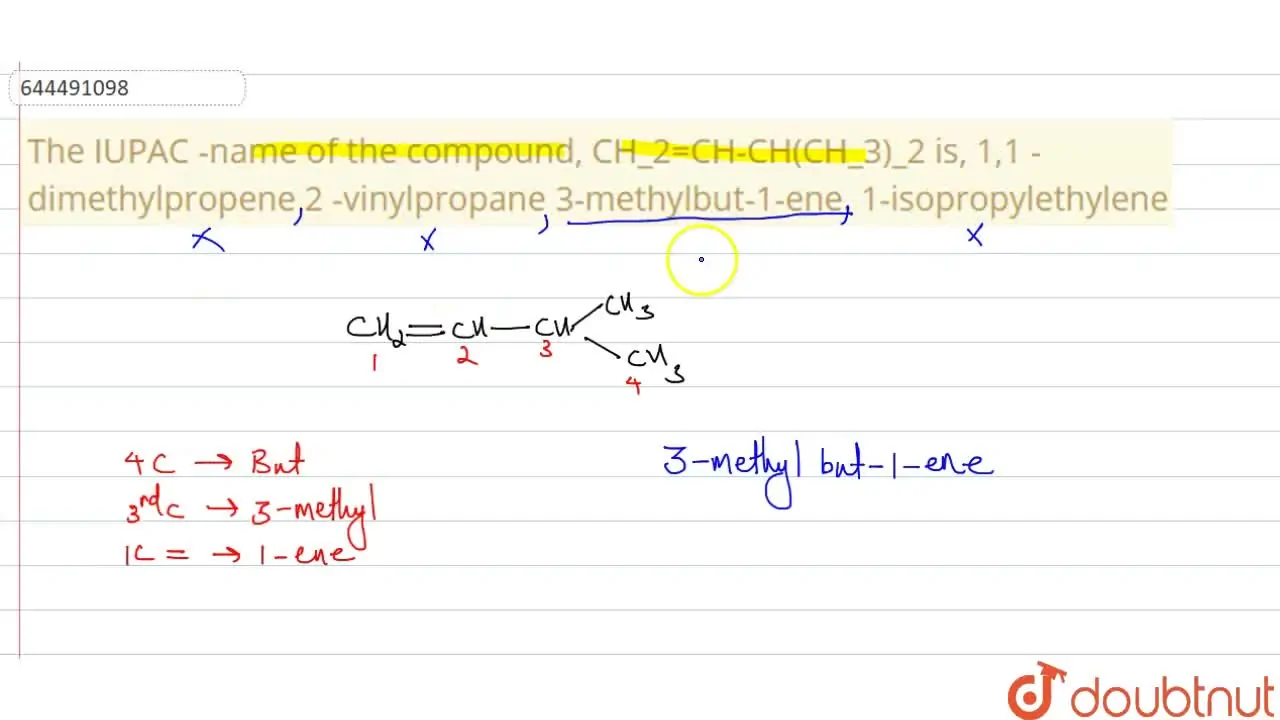 644491098
The IUPAC -name of the compound, CH_2=CH-CH(CH_3)_2 is, 1,1 -
dimethylpropene,2 -vinylpropane 3-methylbut-1-ene, 1-isopropylethylene
x x x
CH2=CH-CH
CH3
CH3
1 2 3
4
4C → But
3rd C → 3-methyl
1C = → 1-ene
3-methyl but-1-ene
doubtnut